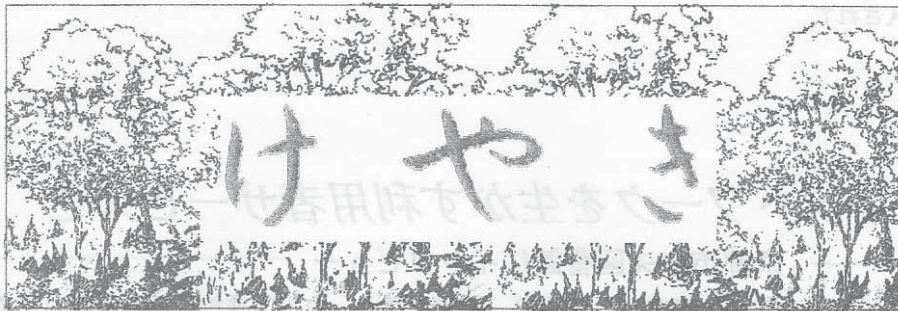 けやき